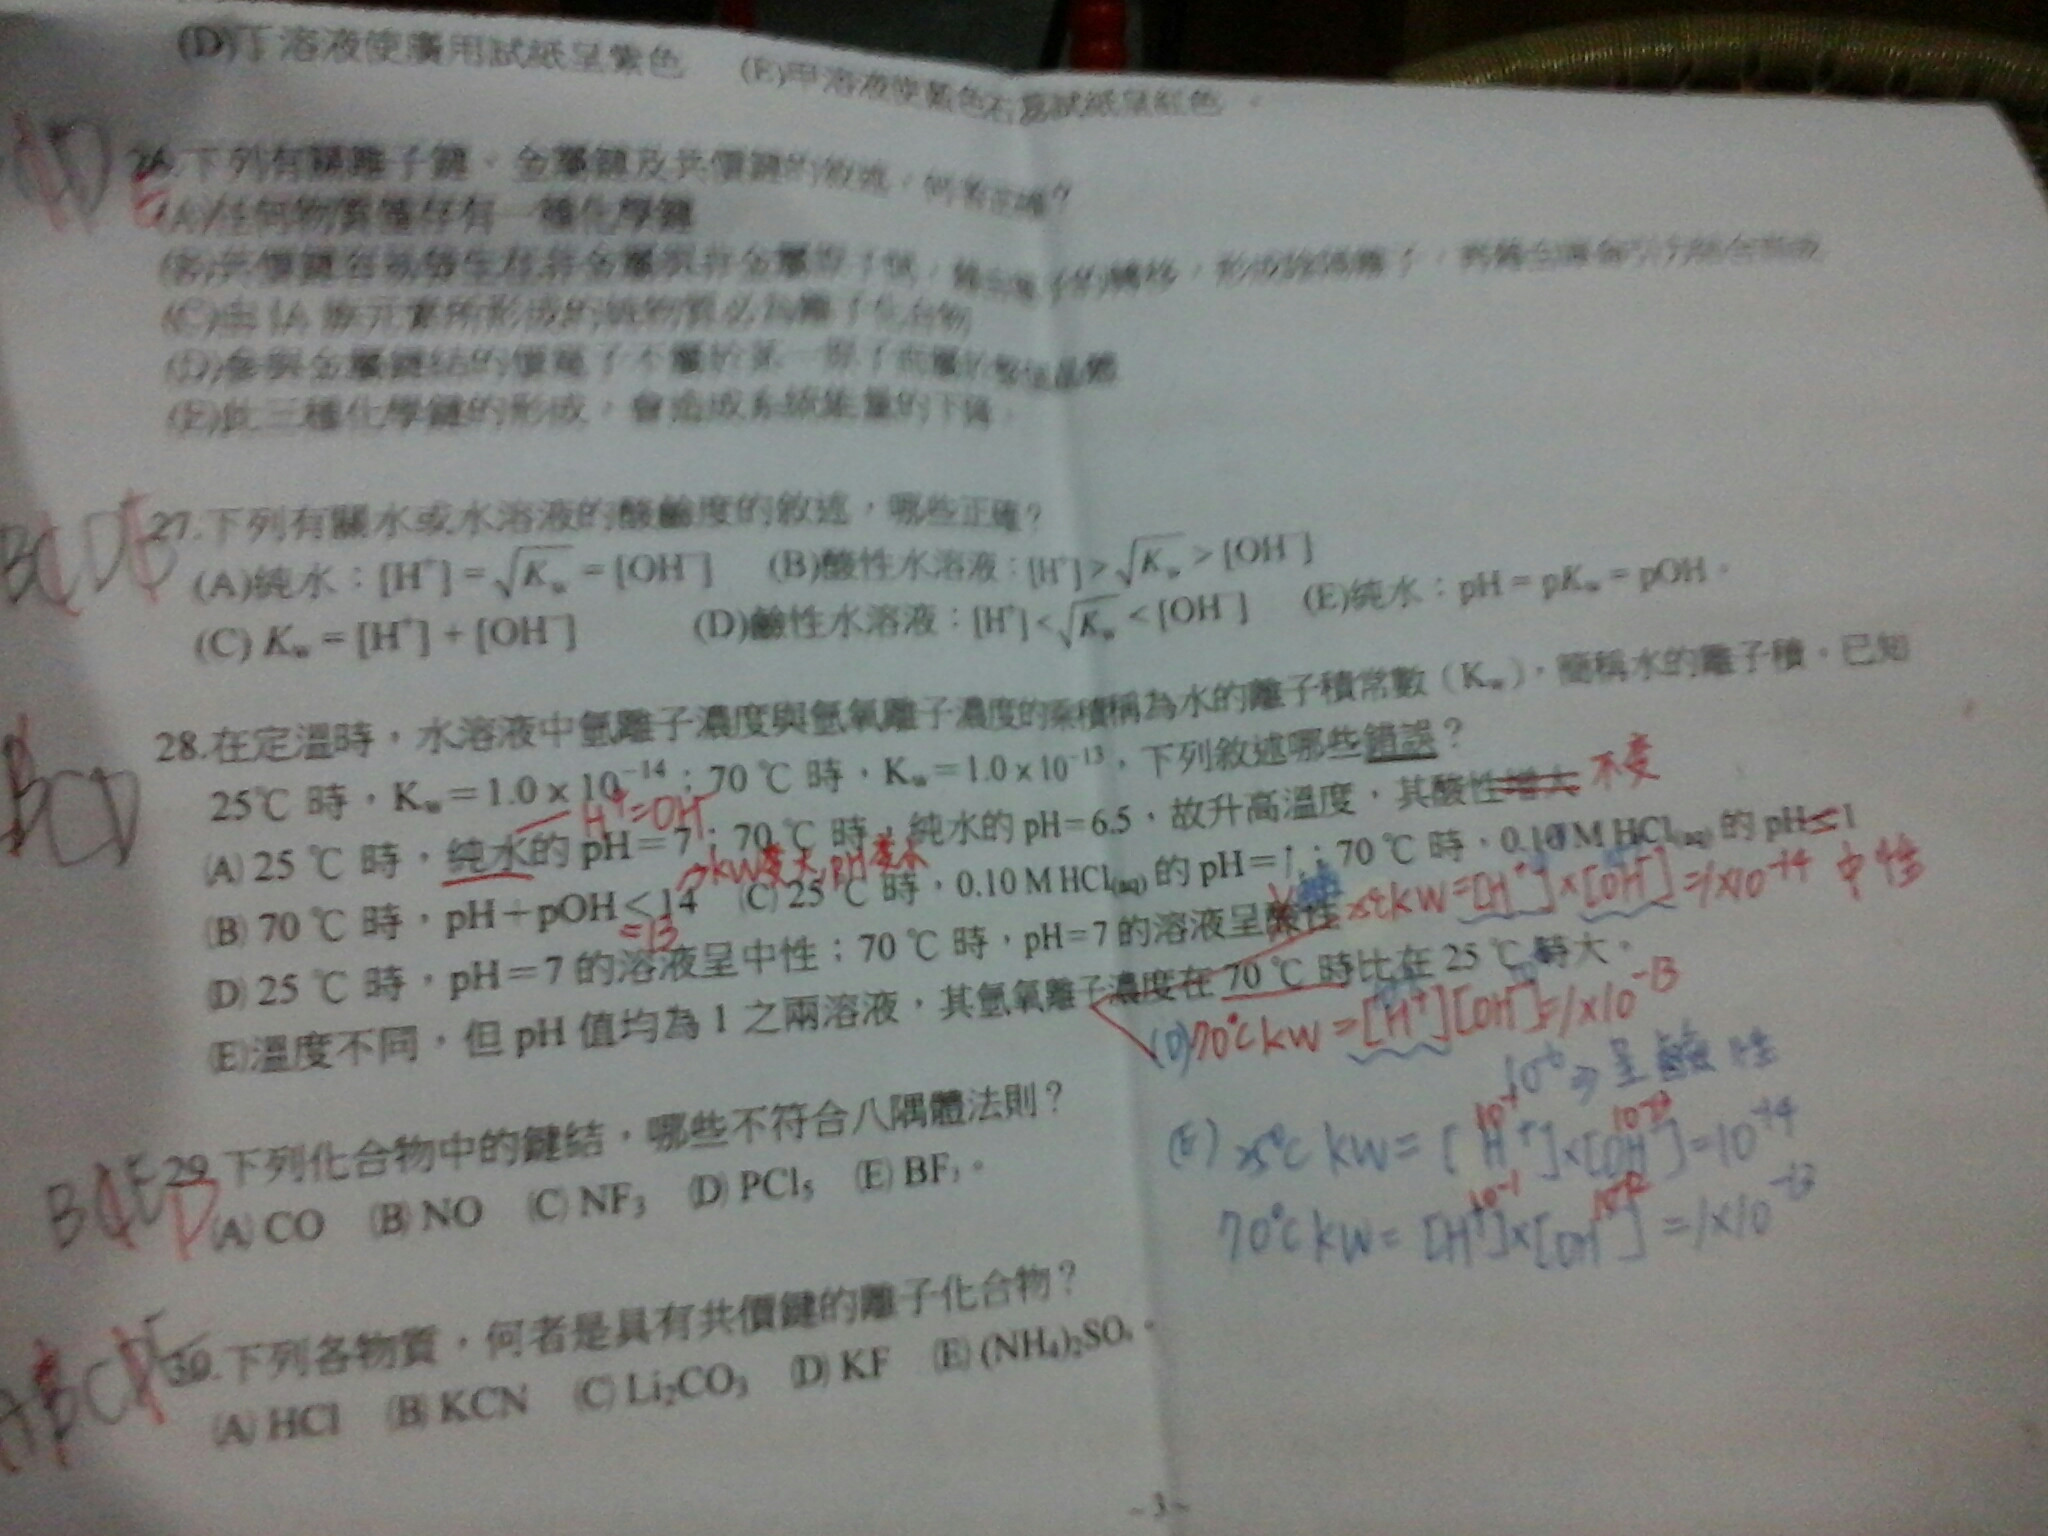 (D)丁溶液使廣用試紙呈紫色 (E)甲溶液使藍色石蕊試紙呈紅色。
26.下列有關離子鍵、金屬鍵及共價鍵的敘述，何者正確？
(A)任何物質僅存有一種化學鍵
(C)由 IA 族元素所形成的純物質必為離子化合物
(D)參與金屬鍵結的價電子不屬於某一原子而屬於整個晶體
(E)此三種化學鍵的形成，會造成系統能量的下降。
27.下列有關水或水溶液的酸鹼度的敘述，哪些正確？
(A)純水：[H⁺] = √Kw = [OH⁻] (B)酸性水溶液：[H⁺] > √Kw > [OH⁻]
(C) Kw = [H⁺] + [OH⁻] (D)鹼性水溶液：[H⁺] < √Kw < [OH⁻] (E)純水：pH = pKw = pOH。
BCD
28.在定溫時，水溶液中氫離子濃度與氫氧離子濃度的乘積稱為水的離子積常數（Kw），簡稱水的離子積。已知
25℃ 時，Kw＝1.0 x 10⁻¹⁴；70 ℃ 時，Kw＝1.0 x 10⁻¹³，下列敘述哪些錯誤？
H⁺=OH⁻
(A) 25 ℃ 時，純水的 pH＝7；70 ℃ 時，純水的 pH＝6.5，故升高溫度，其酸性增大 不變
→kw變大,pH變小
(B) 70 ℃ 時，pH＋pOH＜14 (C) 25 ℃ 時，0.10 M HCl(aq) 的 pH＝1；70 ℃ 時，0.10 M HCl(aq) 的 pH≤1
=13
25℃ kw=[H⁺]×[OH⁻]=1×10⁻¹⁴ 中性
(D) 25 ℃ 時，pH＝7 的溶液呈中性；70 ℃ 時，pH＝7 的溶液呈酸性
(E)溫度不同，但 pH 值均為 1 之兩溶液，其氫氧離子濃度在 70 ℃ 時比在 25 ℃ 時大。
(D)70℃ kw=[H⁺][OH⁻]=1×10⁻¹³
10⁻⁶⇒呈鹼性
29.下列化合物中的鍵結，哪些不符合八隅體法則？
(A) CO (B) NO (C) NF₃ (D) PCl₅ (E) BF₃。
(E) 25℃ kw=[H⁺]×[OH⁻]=10⁻¹⁴
10⁻¹ 10⁻¹³
70℃ kw=[H⁺]×[OH⁻]=1×10⁻¹³
10⁻¹ 10⁻¹²
30.下列各物質，何者是具有共價鍵的離子化合物？
(A) HCl (B) KCN (C) Li₂CO₃ (D) KF (E) (NH₄)₂SO₄。
~3~